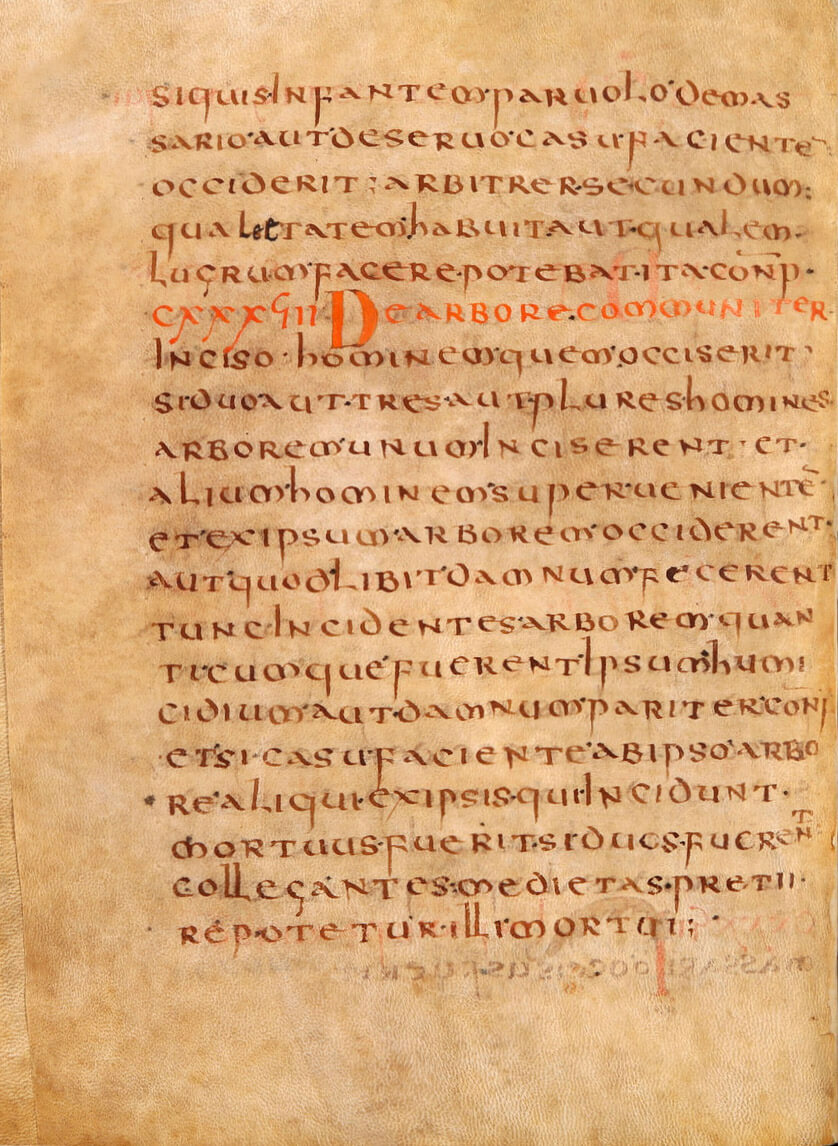 siquis·Infantem·paruolo·demas
sario·aut·deseruo·casu·faciente
occiderit; arbitrer·secundum:
qualetatem·habuit·aut·qualem·
lucrum·facere·potebat·ita·conp·
CXXXVIII De arbore·communiter·
Inciso·hominem·quem·occiserit·
si·duo·aut·tres·aut·plures·homines
arborem·unum·Inciserent·et·
alium·hominem·superuenientē·
et·ex·ipsum·arborem·occiderent·
aut·quodlibit·damnum·fecerent
tunc·Incidentes·arborem·quan
ticumque·fuerent·Ipsum·humi
cidium·aut·damnum·pariter·conp
et·si·casu·faciente·ab·ipso·arbo
re·aliqui·ex·ipsis·qui·Incidunt·
mortuus·fuerit·si·duos·fuerent
collegantes·medietas·pretii·
repotetur·illi·mortui;